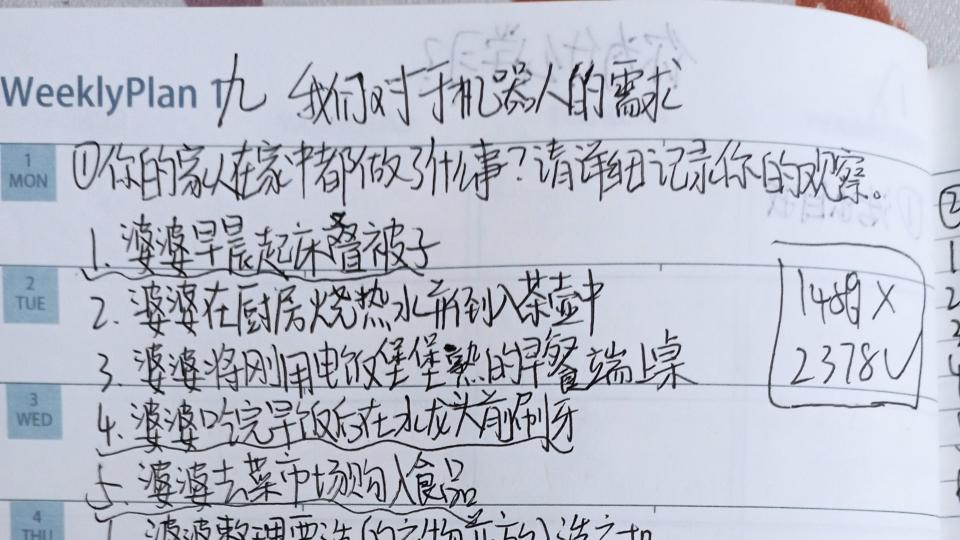 WeeklyPlan 1
九 我们对于机器人的需求
1
MON
①你的家人在家中都做了什么事?请详细记录你的观察。
1.婆婆早晨起床叠被子
2
TUE
2.婆婆在厨房烧热水并倒入茶壶中
3.婆婆将刚用电饭煲煲熟的早餐端上桌
1489X
2378√
3
WED
4.婆婆吃完早饭后在水龙头前刷牙
5.婆婆去菜市场购入食品
4
THU
婆婆整理要洗的衣物并放入洗衣机
②
1
2
3